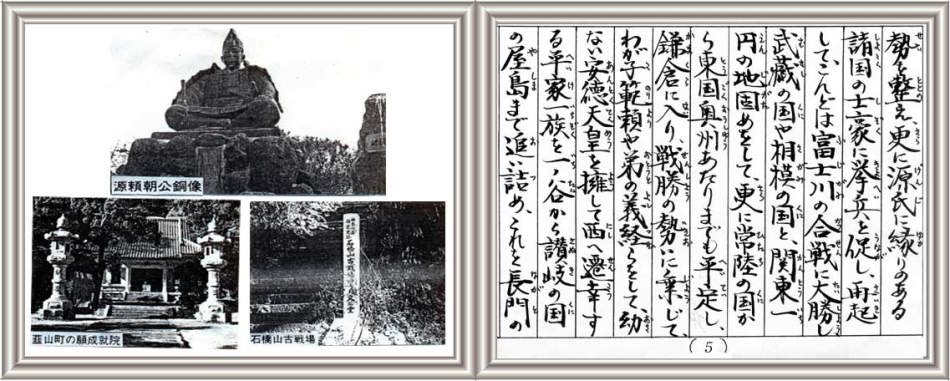 源頼朝公銅像
韮山町の願成就院
石橋山古戦場
勢を整え、更に源氏に縁りのある
諸国の土豪に挙兵を促し、再起
して、こんどは富士川の合戦に大勝し
武蔵の国や相模の国と、関東一
円の地固めをして、更に常陸の国か
ら東国奥州あたりまでも平定し、
鎌倉に入り、戦勝の勢いに乗じて、
わが子範頼や弟の義経らをして、幼
ない安徳天皇を擁して西へ遷幸す
る平家一族を一ノ谷から讃岐の国
の屋島まで追い詰め、これを長門の
(5)